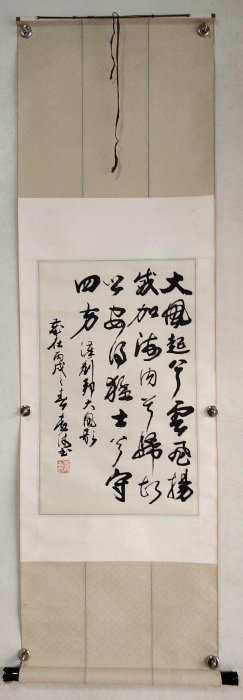 大風起兮雲飛揚
威加海内兮歸故
鄉安得猛士兮守
四方 漢劉邦大風歌
歲在丙戌之春